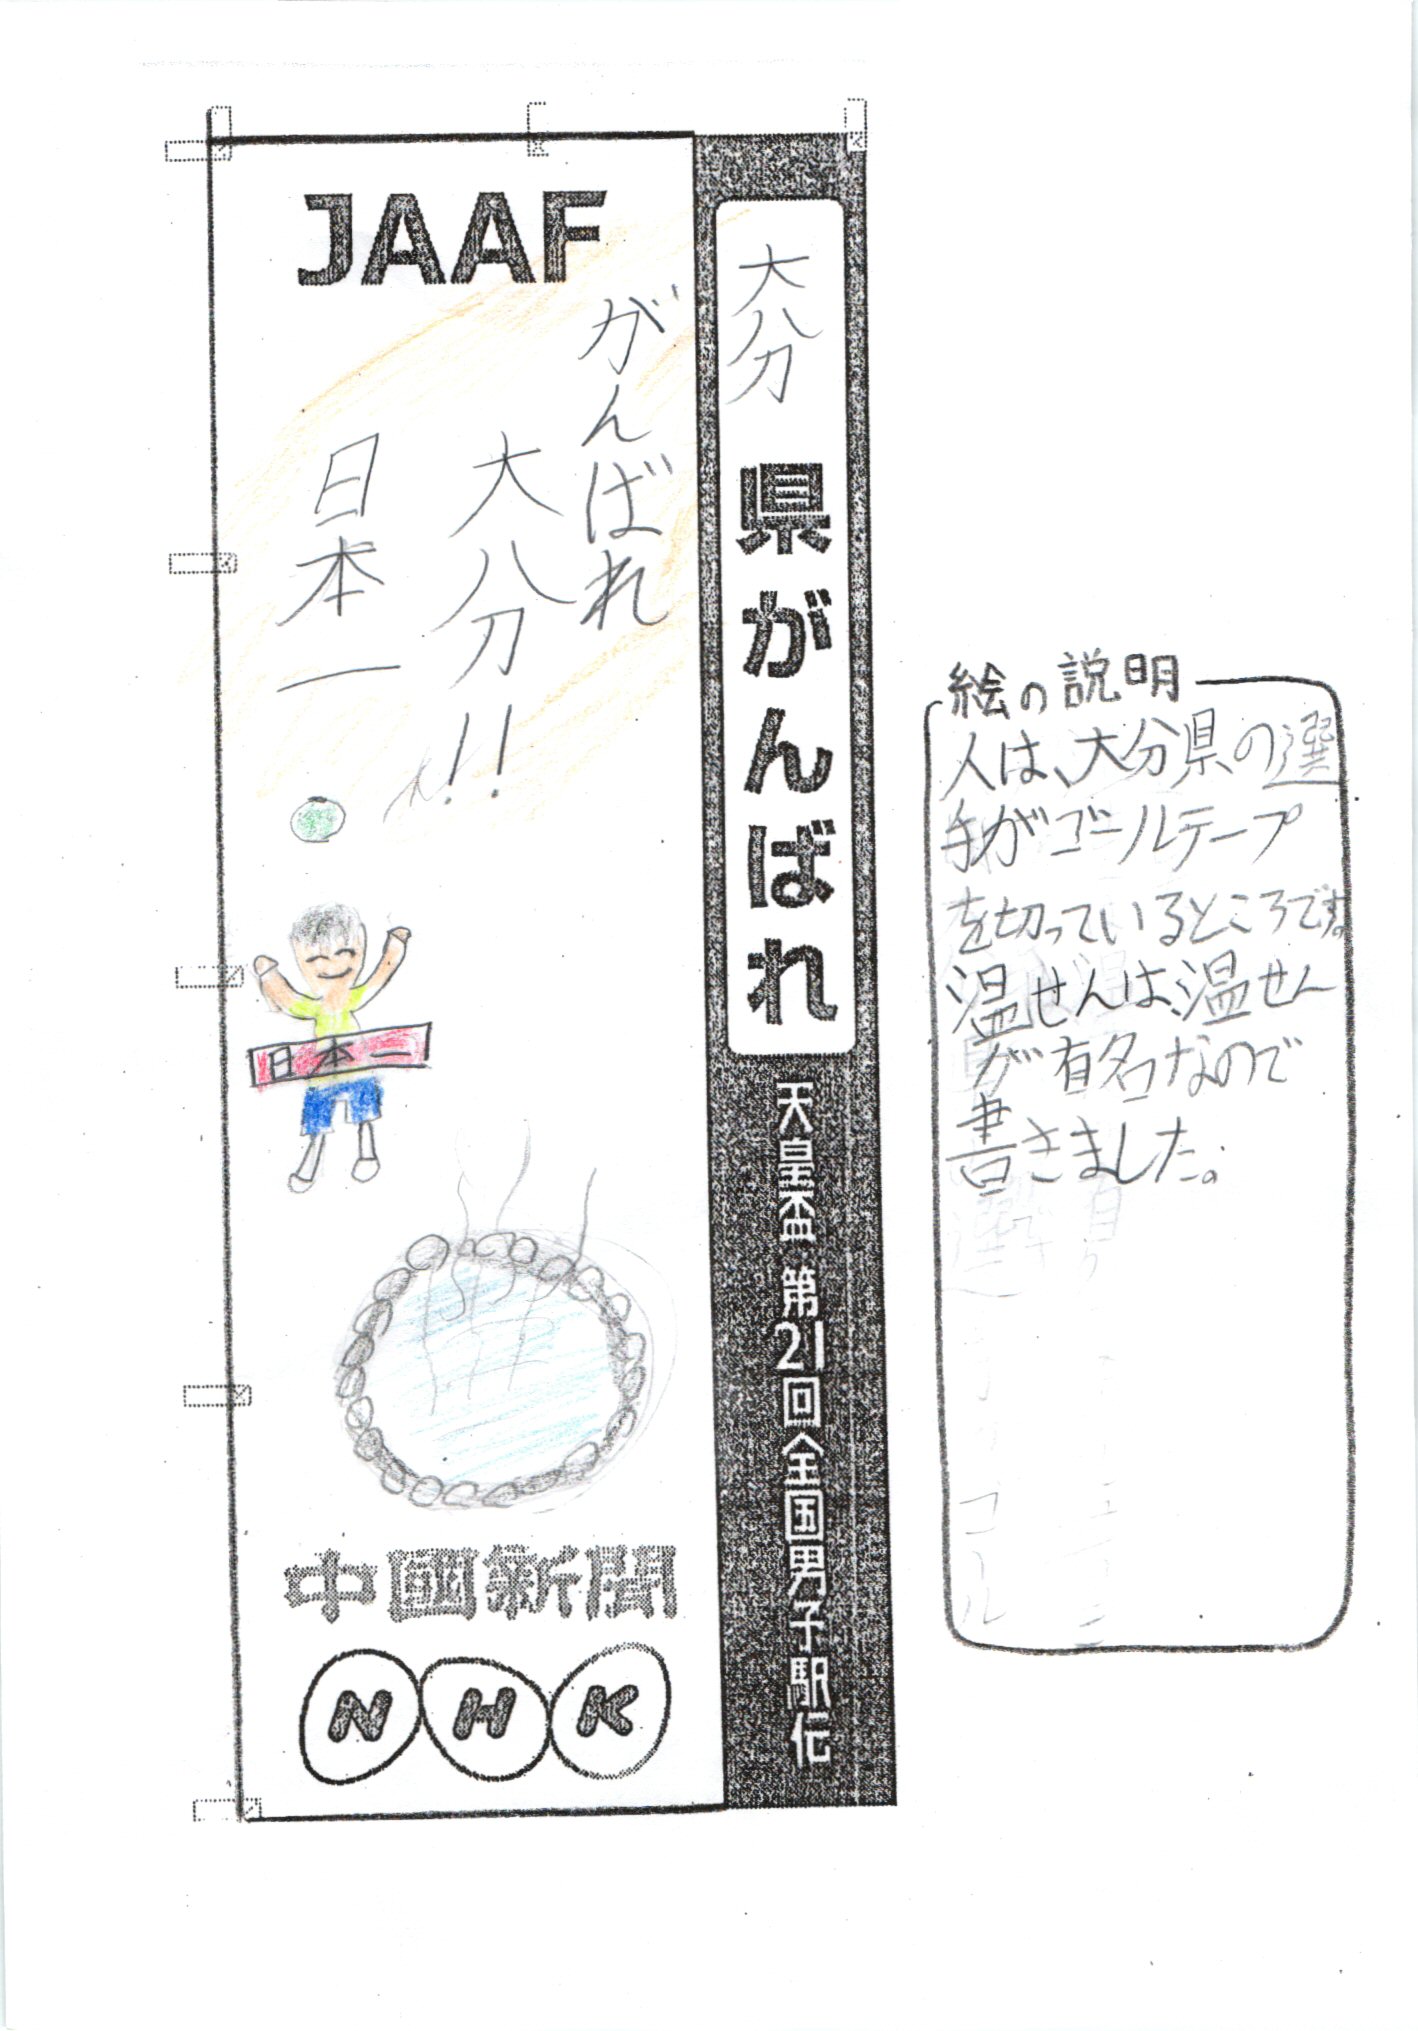 JAAF
がんばれ
大分!!
日本一
日本一
中國新聞
NHK
大分県がんばれ
天皇盃 第21回全国男子駅伝
絵の説明
人は、大分県の選
手がゴールテープ
を切っているところです。
温せんは、温せん
が有名なので
書きました。